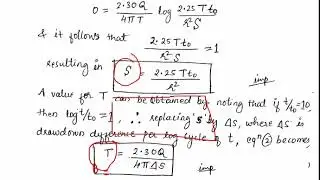 0 = 2.30Q / 4πT log 2.25 T t₀ / r²S
& it follows that 2.25 T t₀ / r²S = 1
resulting in S = 2.25 T t₀ / r² imp
A value for T can be obtained by noting that if t/t₀ = 10,
then log t/t₀ = 1, ∴ replacing 's' by Δs, where Δs is
drawdown difference per log cycle of t, eqⁿ ② becomes
T = 2.30Q / 4πΔs imp